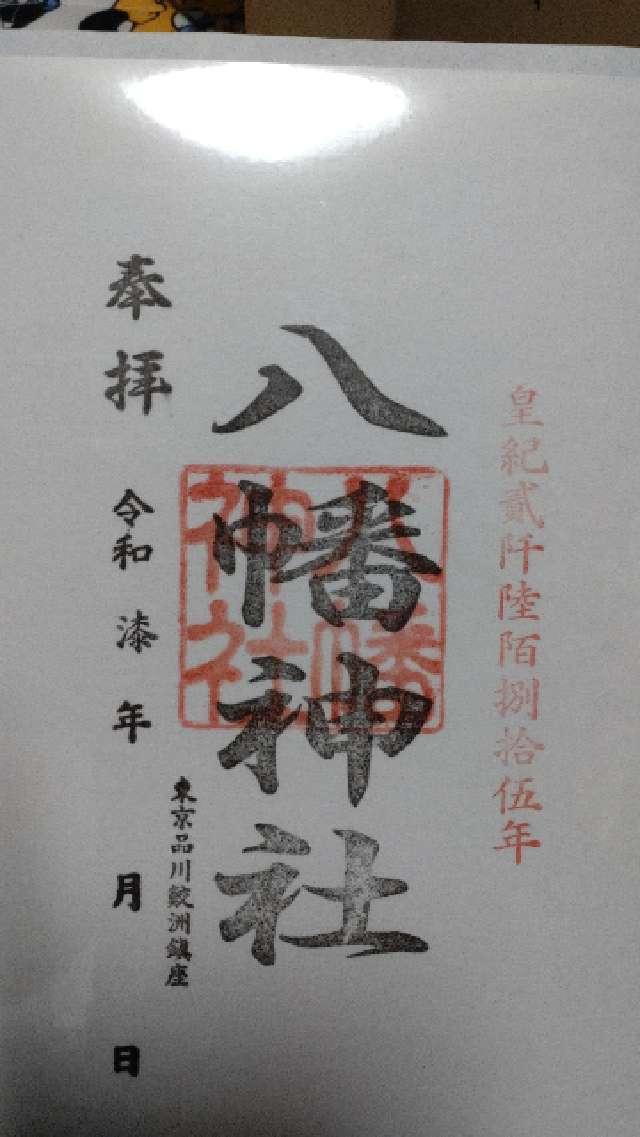 皇紀貳阡陸陌捌拾伍年
八幡神社
八幡神社
東京品川鮫洲鎮座
奉拝 令和 漆 年 月 日